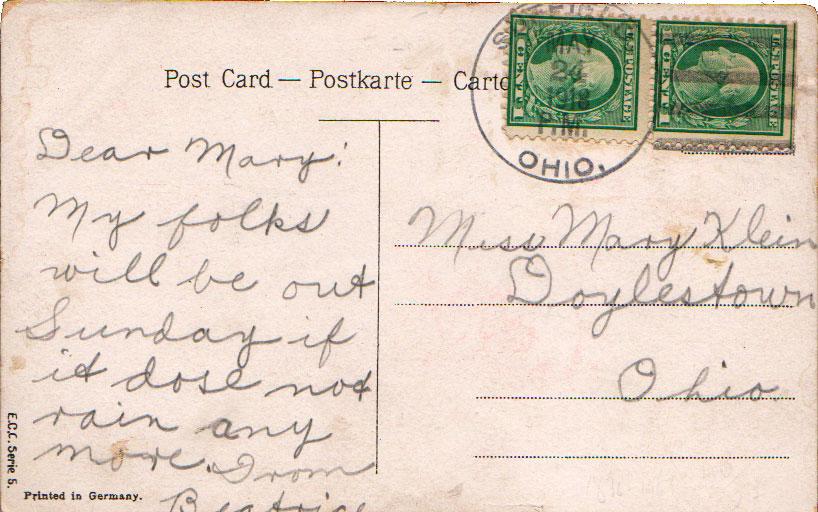 Post Card — Postkarte — Carto
MAY
24
1918
P.M.
OHIO.
U.S. POSTAGE
1 CENT 1
U.S. POSTAGE
1 CENT 1
Dear Mary!
My folks
will be out
Sunday if
it dose not
rain any
more. From
Beatrice
Miss Mary Klein
Doylestown
Ohio.
E.C.C. Serie 5.
Printed in Germany.